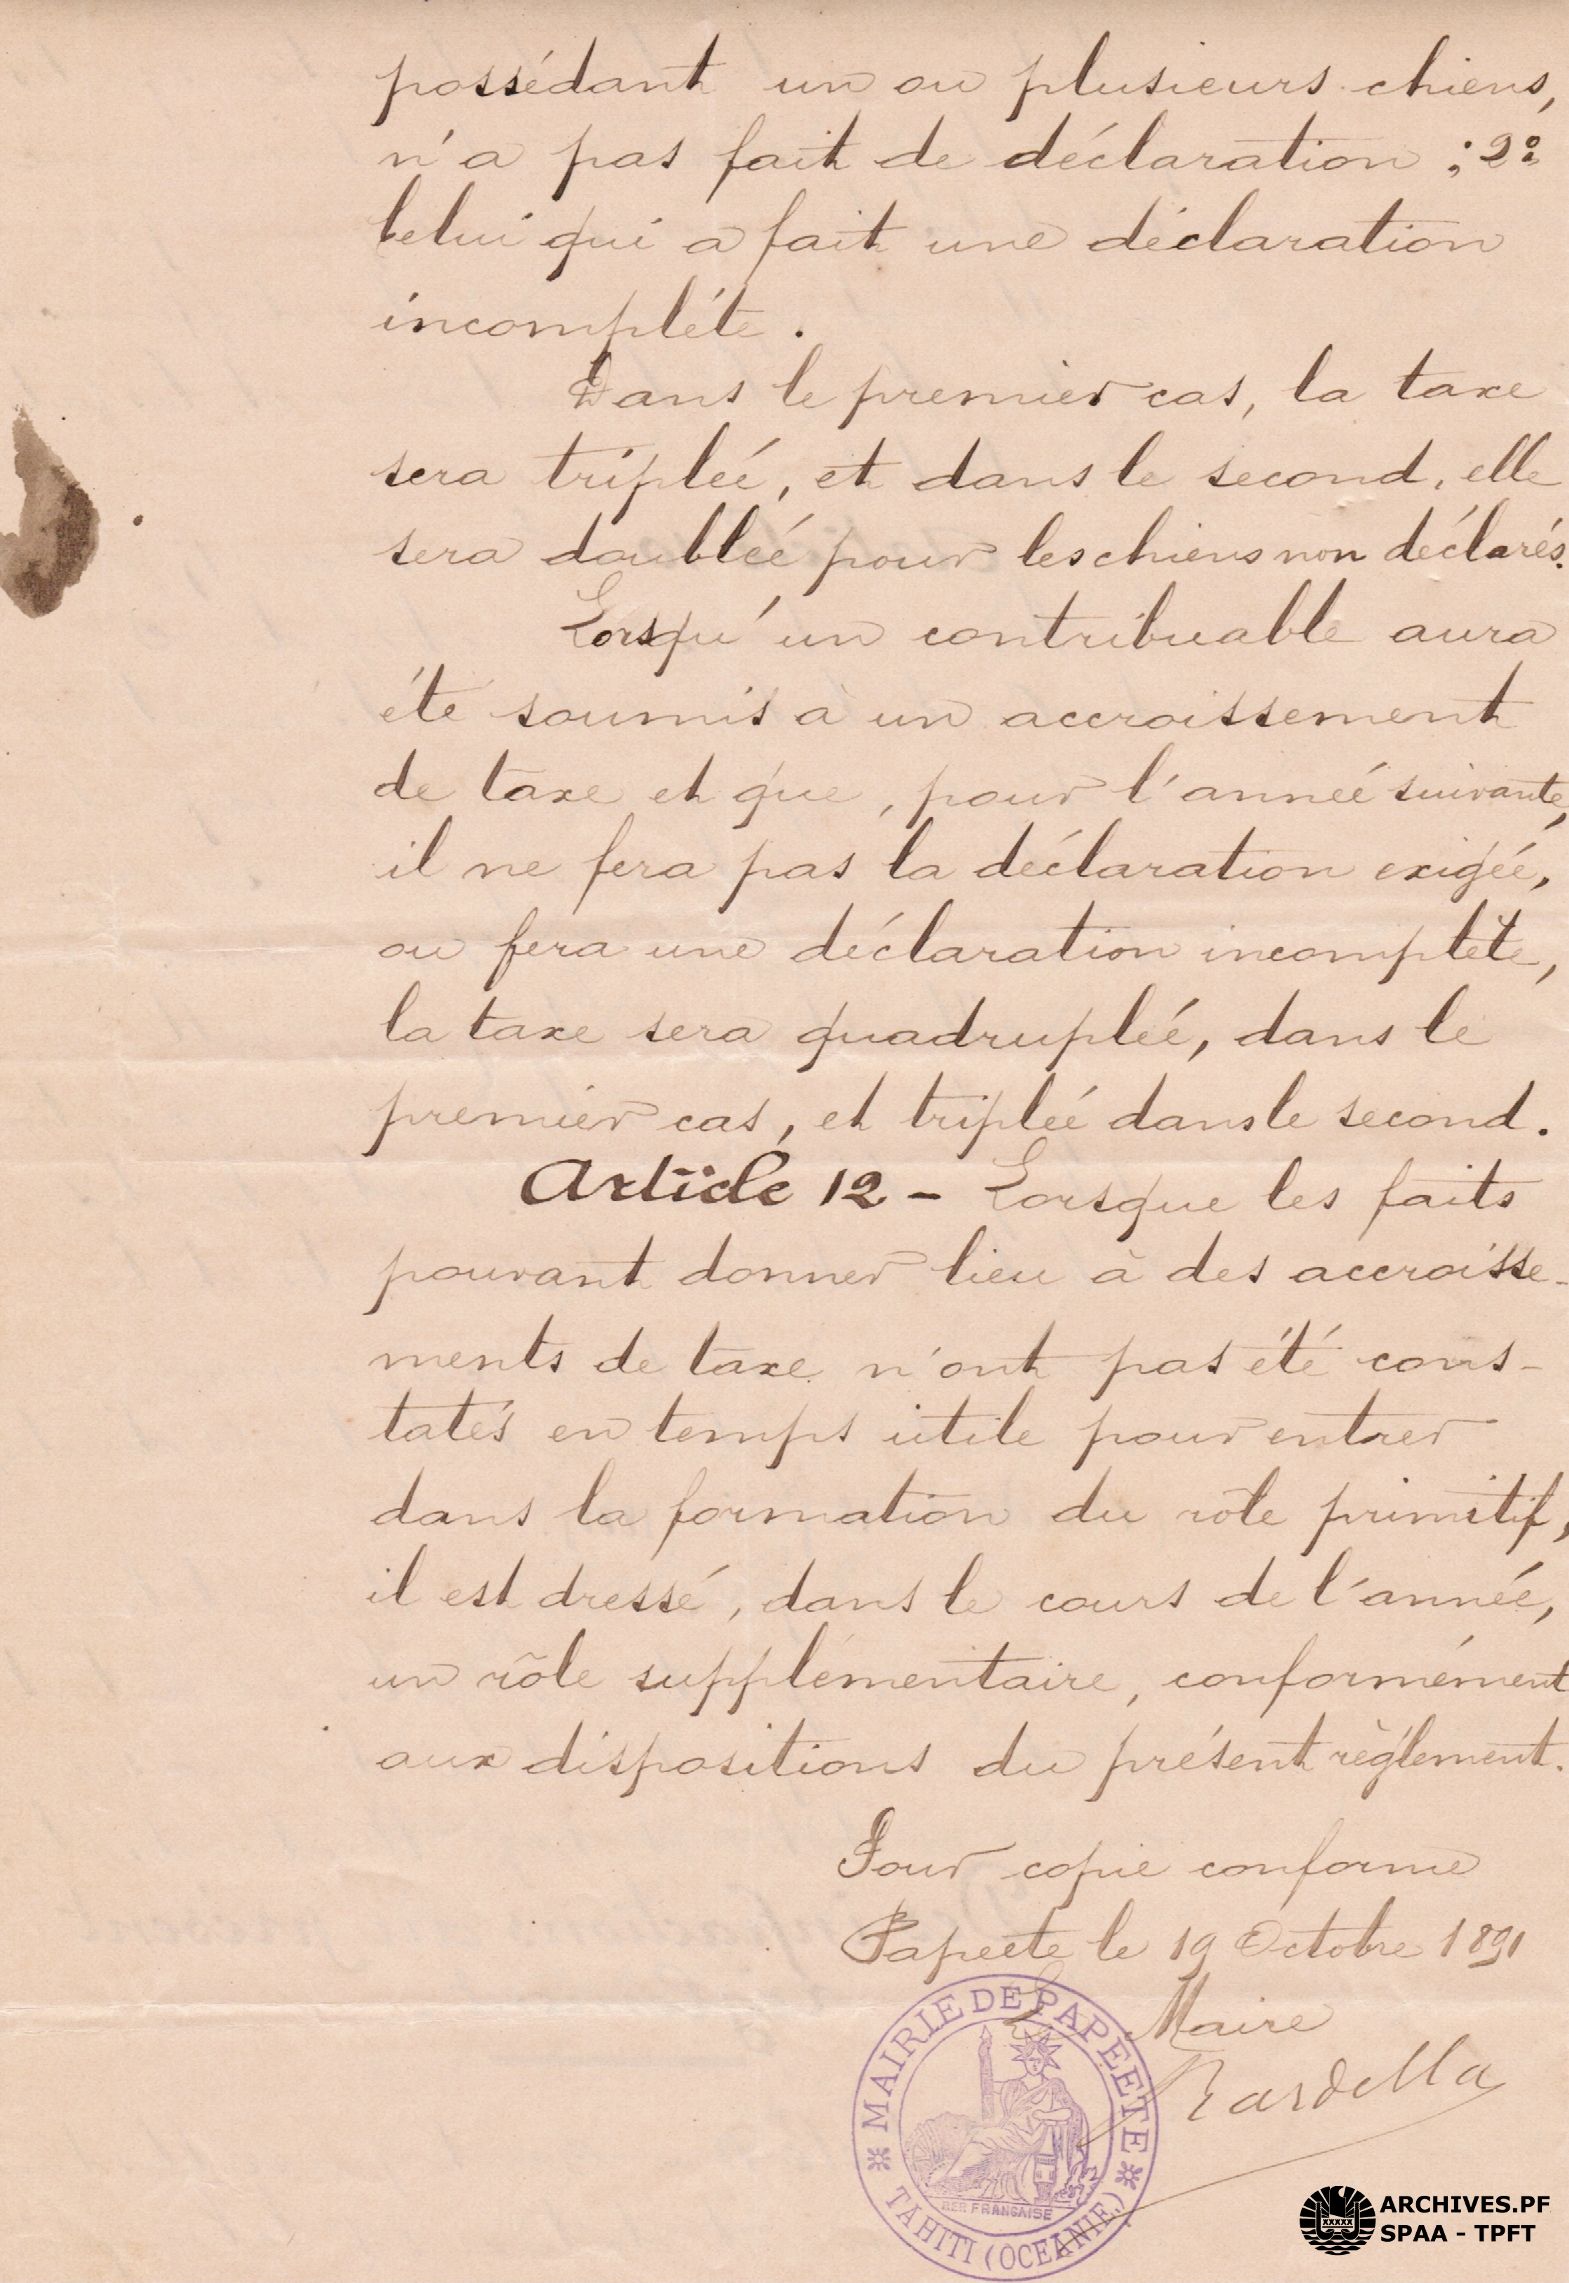 possédant un ou plusieurs chiens,
n'a pas fait de déclaration ; 2º
Celui qui a fait une déclaration
incomplète.
Dans le premier cas, la taxe
sera triplée, et dans le second, elle
sera doublée pour les chiens non déclarés.
Lorsqu'un contribuable aura
été soumis à un accroissement
de taxe et que, pour l'année suivante,
il ne fera pas la déclaration exigée,
ou fera une déclaration incomplète,
la taxe sera quadruplée, dans le
premier cas, et triplée dans le second.
Article 12 - Lorsque les faits
pouvant donner lieu à des accroisse-
ments de taxe n'ont pas été cons-
tatés en temps utile pour entrer
dans la formation du rôle primitif,
il est dressé, dans le cours de l'année,
un rôle supplémentaire, conformément
aux dispositions du présent règlement.
Pour copie conforme
Papeete le 19 Octobre 1891
Le Maire
Cardella
MAIRIE DE PAPEETE
TAHITI (OCEANIE)
REP FRANÇAISE
ARCHIVES.PF
SPAA - TPFT